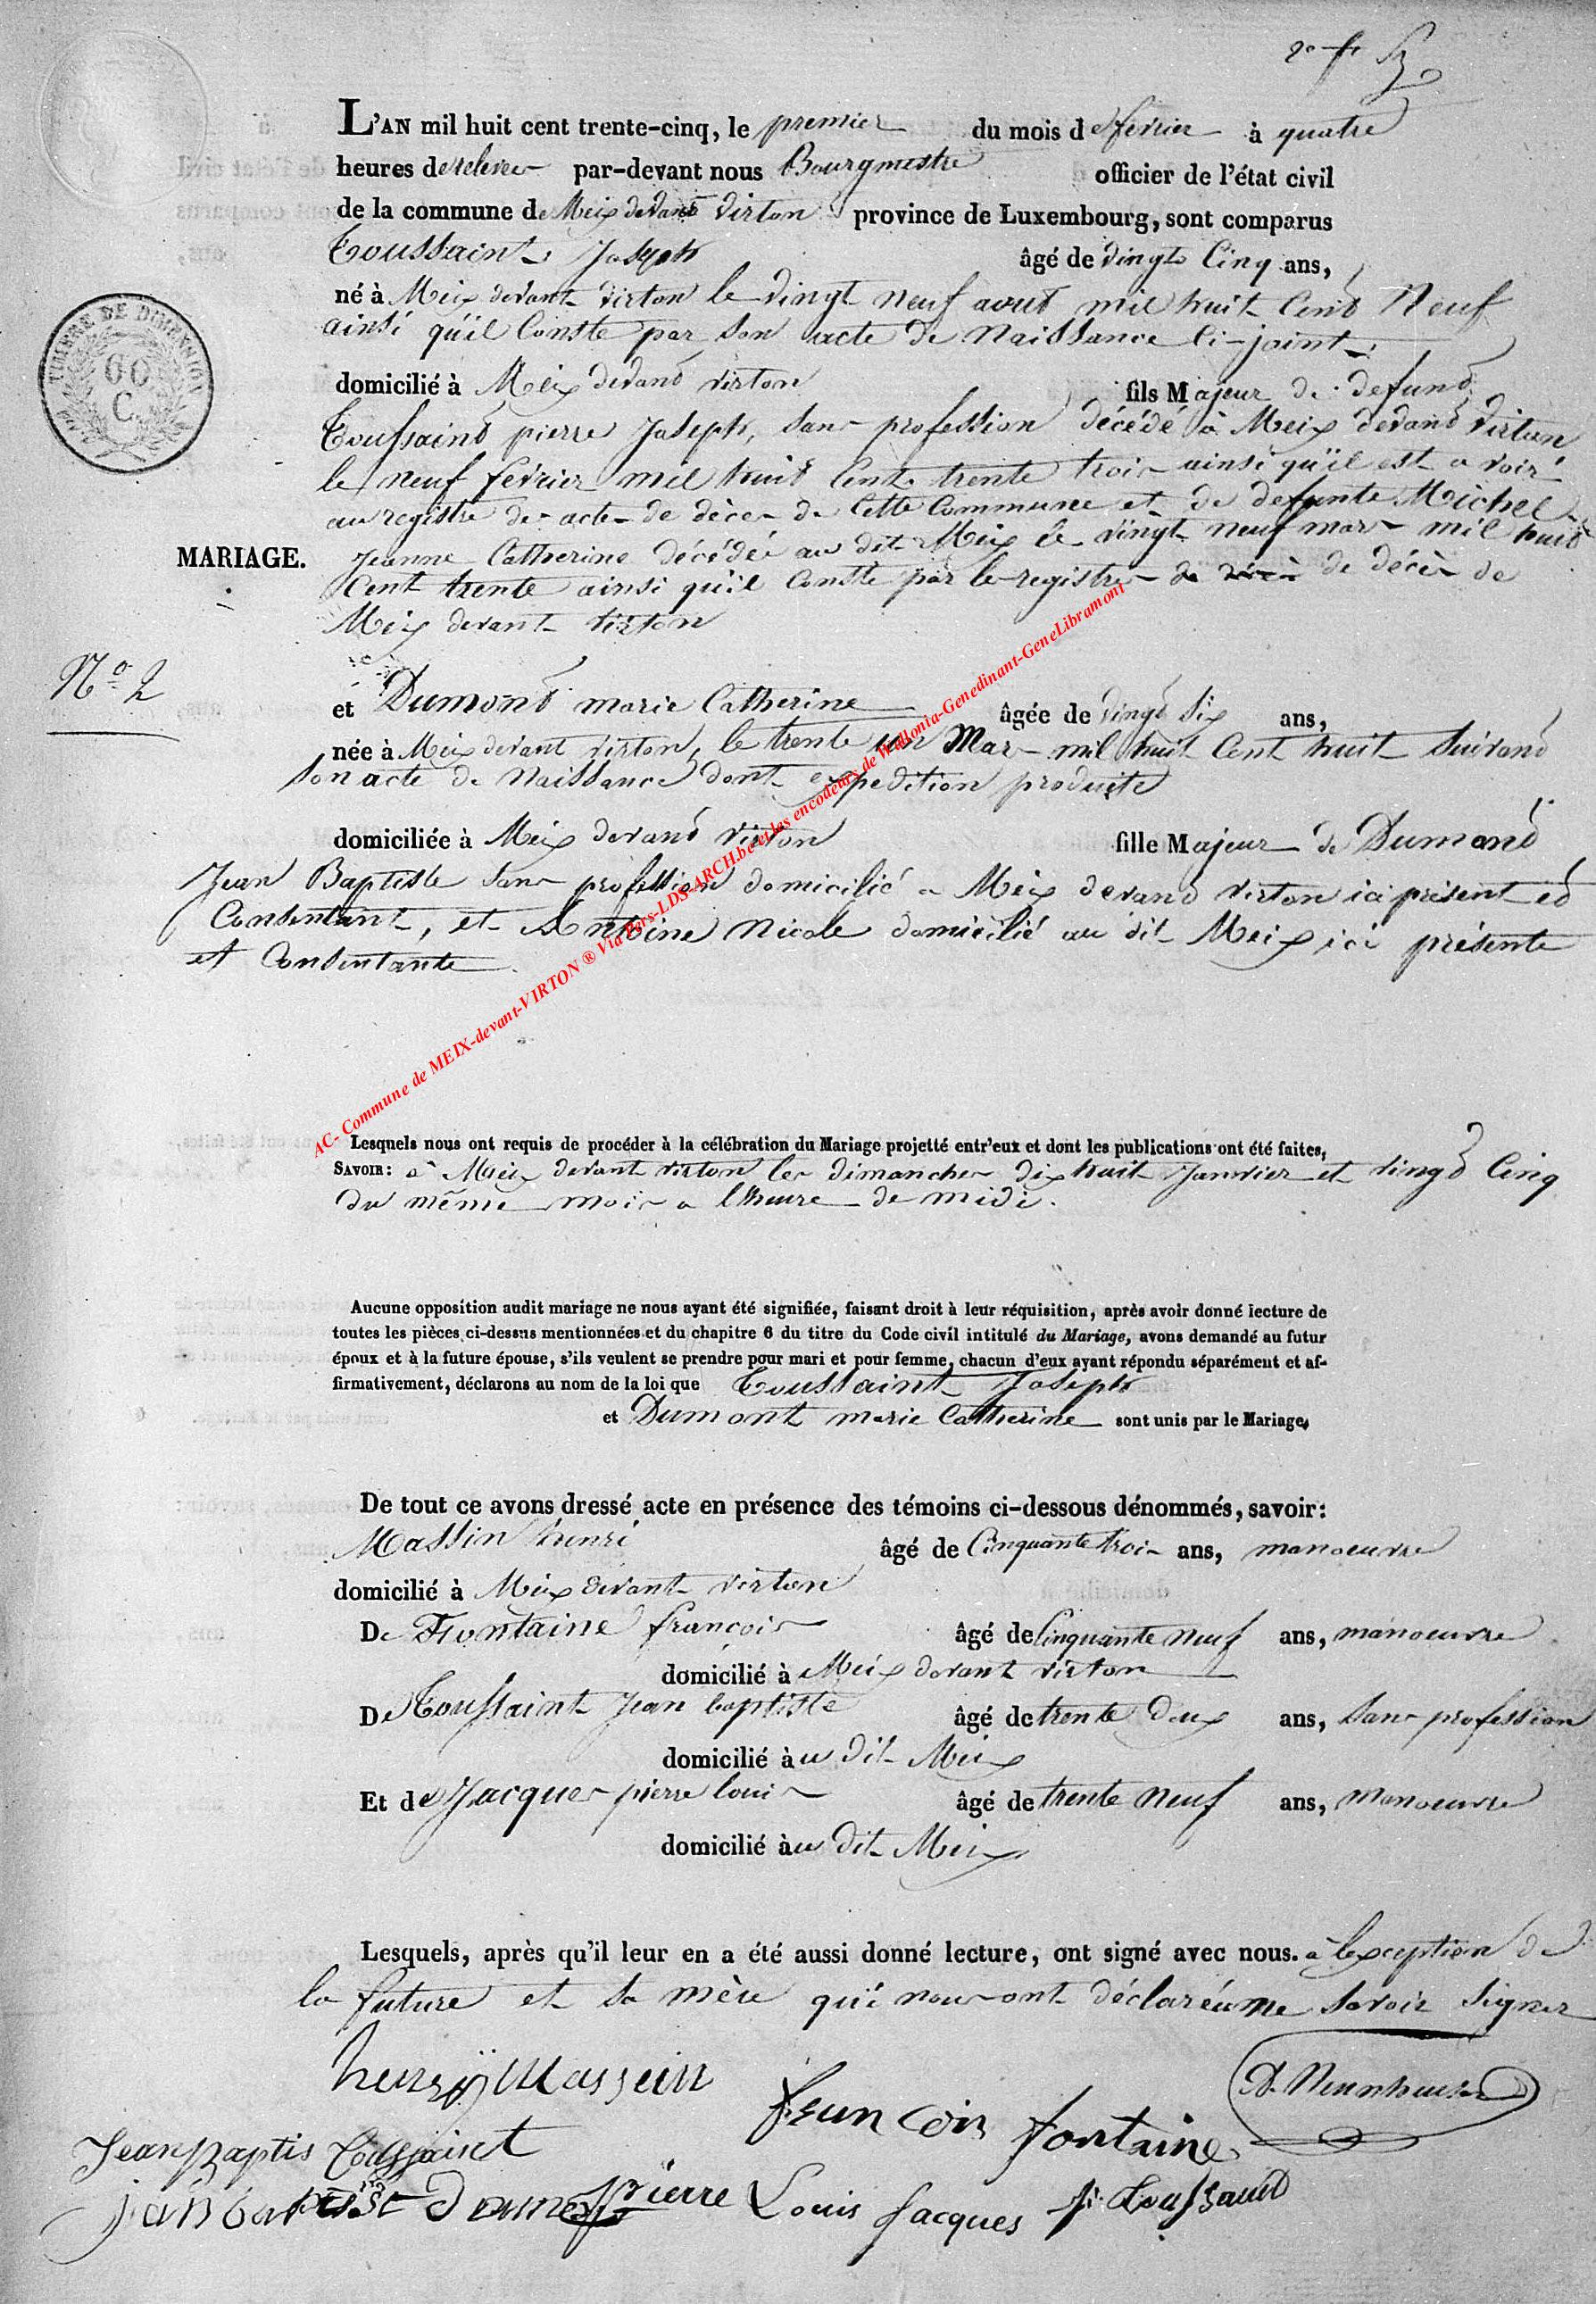 L'AN mil huit cent trente-cinq, le premier du mois de fevrier à quatre
heures de relevee par-devant nous Bourgmestre officier de l'état civil
de la commune de Meix devant virton province de Luxembourg, sont comparus
Toussaint Joseph âgé de vingt Cinq ans,
né à Meix devant virton le vingt neuf aout mil huit Cent Neuf
ainsi qu'il Conste par son acte de Naissance Ci-joint
domicilié à Meix devant virton fils Majeur de defunt
Toussaint pierre Joseph, sans profession décédé à Meix devant virton
le neuf fevrier mil huit Cent trente trois ainsi qu'il est a voir
au registre des actes de décès de Cette Commune et de defunte Michel
MARIAGE.
Jeanne Catherine décédée au dit Meix le vingt neuf mars mil huit
Cent trente ainsi qu'il Conste par les registres de décès de décès de
Meix devant virton
No 2
et Dumont marie Catherine âgée de vingt Six ans,
née à Meix devant virton, le trente un Mars mil huit Cent huit Suivant
Son acte de Naissance dont expedition produite
domiciliée à Meix devant virton fille Majeur de Dumont
Jean Baptiste Sans profession domicilié a Meix devant virton ici présent et
Consentant, et Antoine Nicole domicilié au dit Meix ici présente
et Consentante
AC- Commune de MEIX-devant-VIRTON ® Via Pers-LDS-ARCH.be et les encodeurs de Wallonia-Genedinant-GeneLibramont
Lesquels nous ont requis de procéder à la célébration du Mariage projetté entr'eux et dont les publications ont été faites,
SAVOIR: a Meix devant virton les dimanches dix huit Janvier et vingt Cinq
du même mois a l'heure de midi.
Aucune opposition audit mariage ne nous ayant été signifiée, faisant droit à leur réquisition, après avoir donné lecture de
toutes les pièces ci-dessus mentionnées et du chapitre 6 du titre du Code civil intitulé du Mariage, avons demandé au futur
époux et à la future épouse, s'ils veulent se prendre pour mari et pour femme, chacun d'eux ayant répondu séparément et af-
firmativement, déclarons au nom de la loi que Toussaint Joseph
et Dumont marie Catherine sont unis par le Mariage.
De tout ce avons dressé acte en présence des témoins ci-dessous dénommés, savoir:
Massin henri âgé de Cinquante trois ans, manoeuvre
domicilié à Meix devant virton
De Fontaine françois âgé de Cinquante neuf ans, manoeuvre
domicilié à Meix devant virton
De Toussaint Jean baptiste âgé de trente deux ans, Sans profession
domicilié àu dit Meix
Et de Jacques pierre louis âgé de trente Neuf ans, Manoeuvre
domicilié àu dit Meix
Lesquels, après qu'il leur en a été aussi donné lecture, ont signé avec nous. a l'exception de
la future et sa mère qui nous ont déclaré ne savoir signer
henry Massein
françois fontaine
Jean Baptis Toussaint
pierre Louis Jacques
J. Toussaint
TIMBRE DE DIMENSION
60
C.